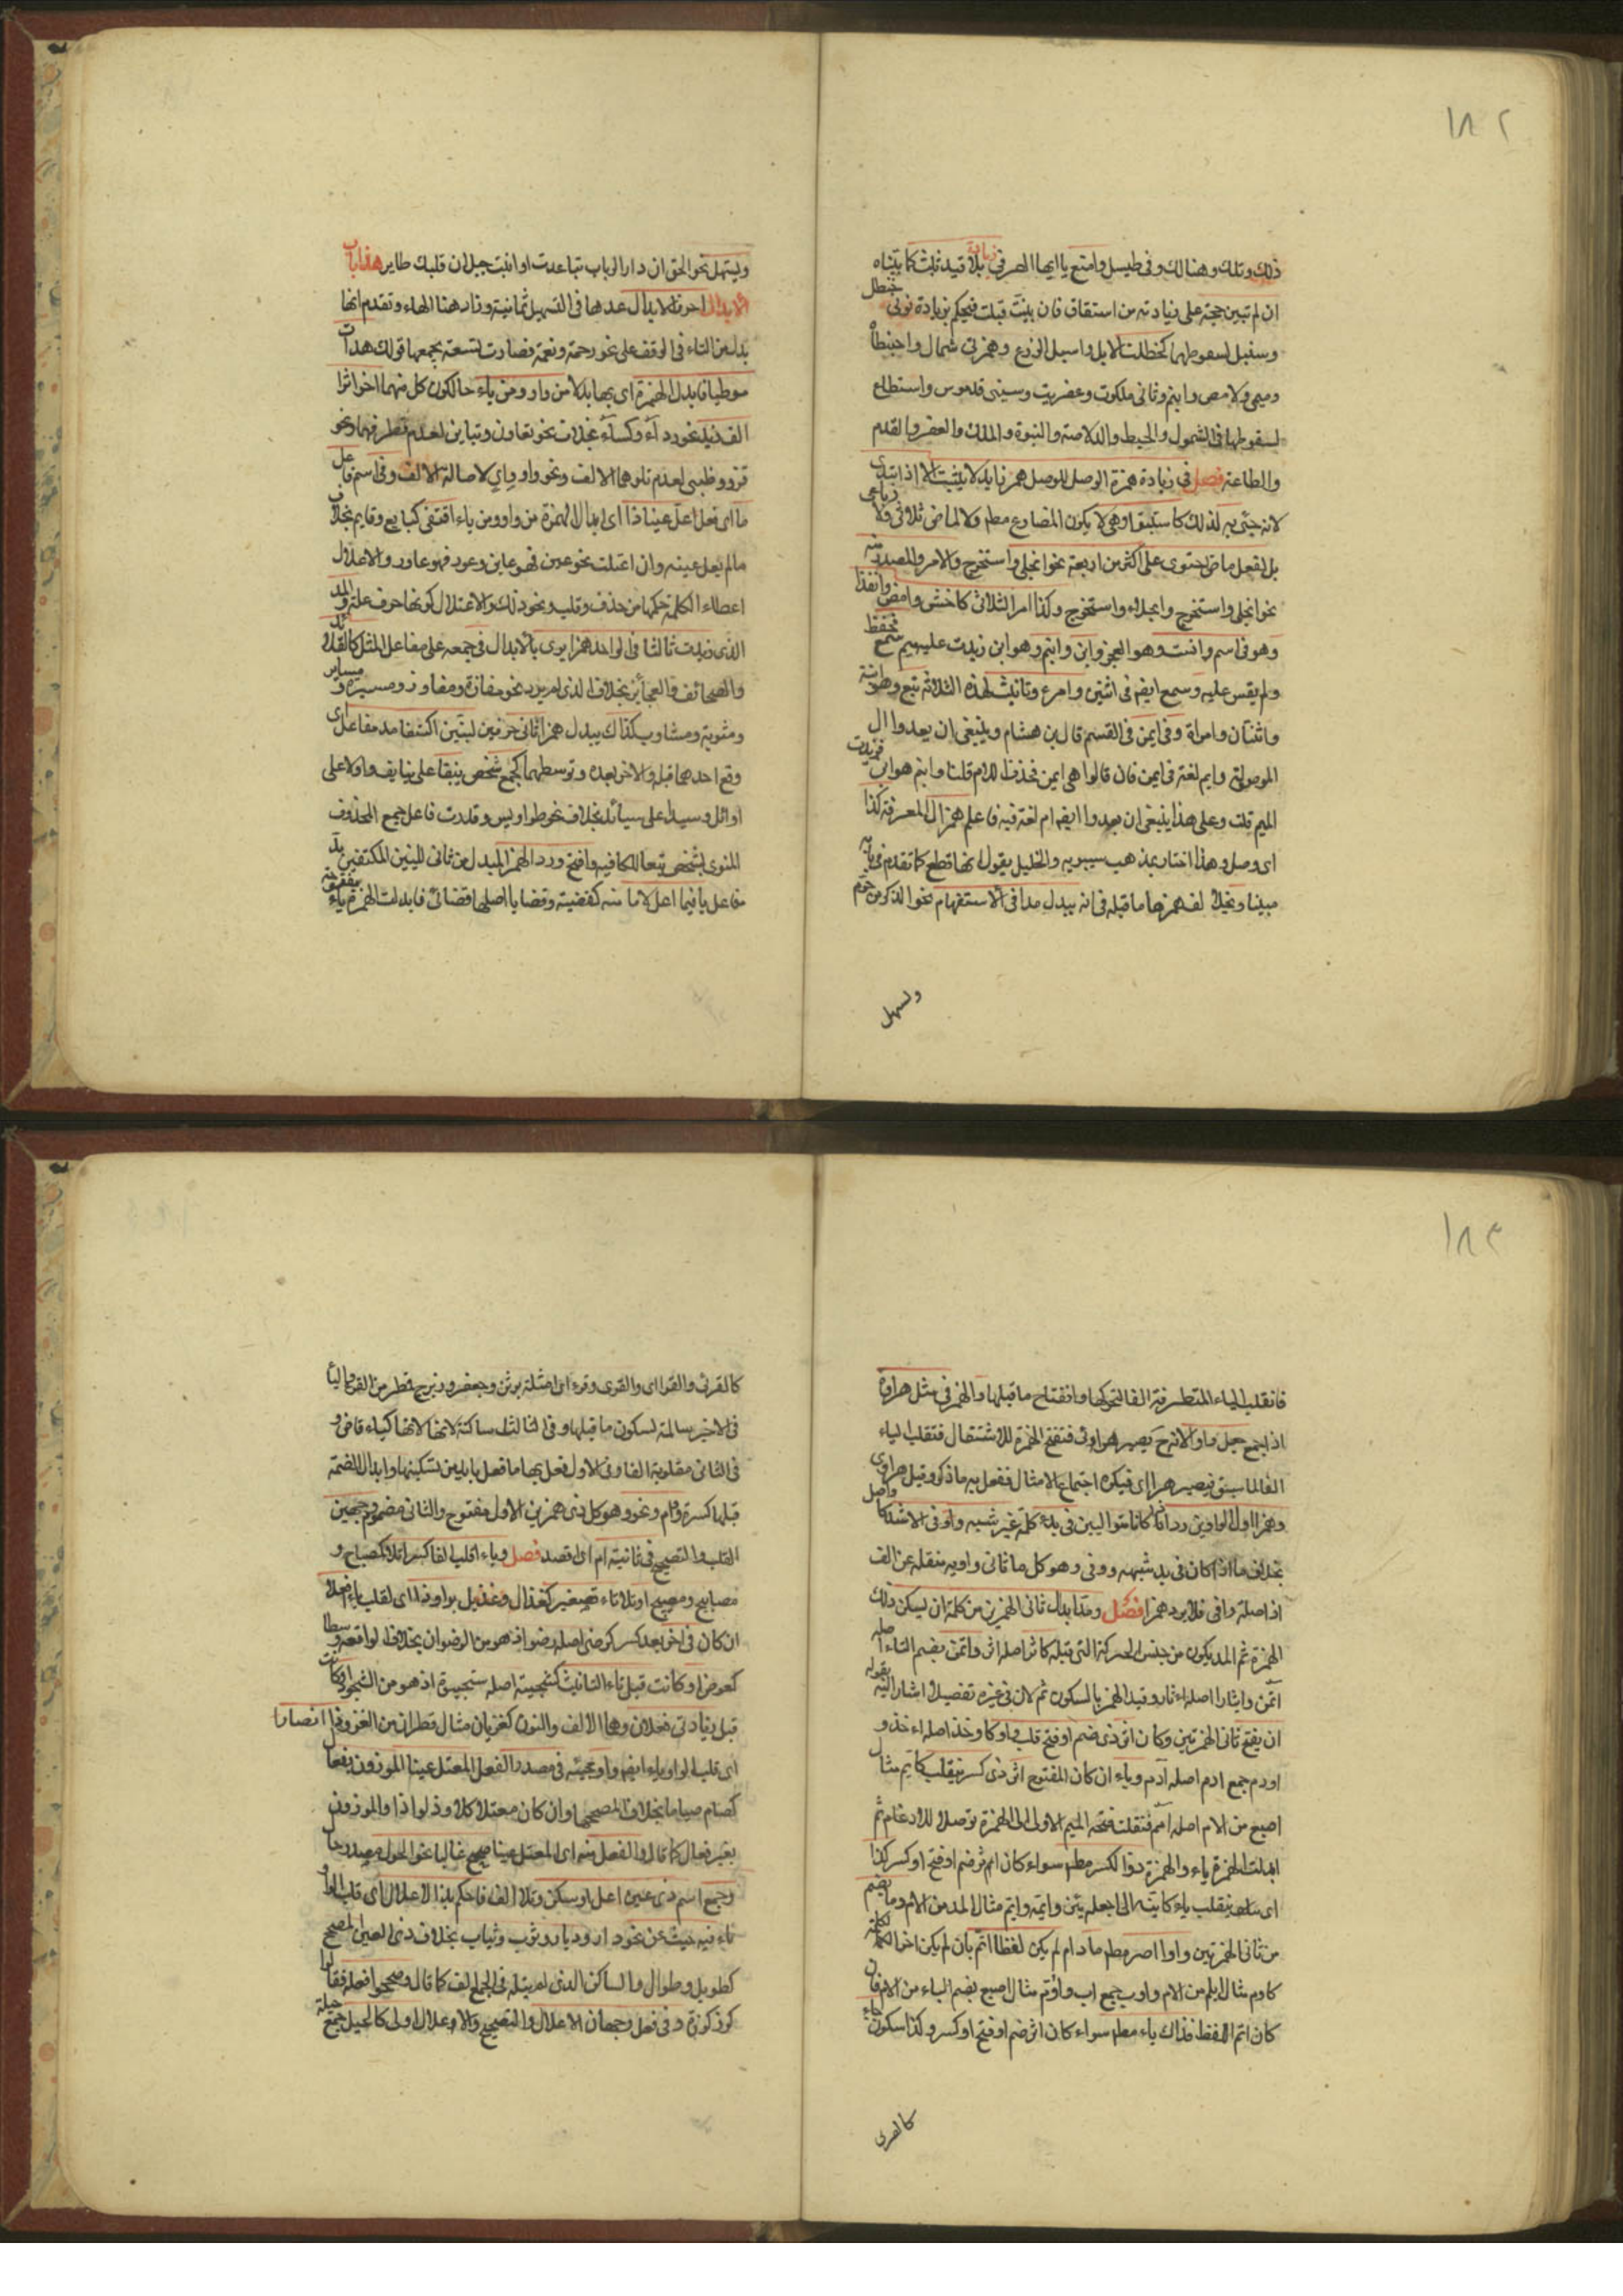 ١٨٢
ذلك وتلك وهنالك وفى طيسل وامنع يا ايها الصرفى زيادة بلا قيد ثبت كما بيناه
ان لم تبين حجة على زيادته من اشتقاق فان بينت قبلت فيحكم بزيادة نونى حنظل
وسنبل لسقوطهما كحظلت الابل واسبل الزرع وهمزتى شمال واحبنطأ
وميمى دلامص وابنم وثانى ملكوت وعفريت وسينى قدموس واستطاع
لسقوطها فى الشمول والحبط والدلاصة والبنوة والملك والعفر والقدم
والطاعة فصل فى زيادة همزة الوصل للوصل همز زايد لا يثبت الا اذا ابتدى
لانه جئى به لذلك كاستثبتوا وهى لا يكون لمضارع مطم ولا لماض ثلاثى ولا رباعى
بل لفعل ماض احتوى على اكثر من اربعة نحو انجلى واستخرج والامر والمصدر منه
نحو انجلى واستخرج وانجلاء واستخراج وكذا امر الثلاثى كاخش وامض وانفذا
وهو فى اسم واست وهو العجز وابن وابنم وهو ابن زيدت عليه ميم سمع فحفظ
ولم يقس عليه وسمع ايضا فى اثنين وامرء وتانيث لهذه الثلاثة تبع وهو ابنة
واثنتان وامراة وفى ايمن فى القسم قال بن هشام وينبغى ان يعدوا ال
الموصولة وايم لغة فى ايمن فان قالوا هى ايمن فحذفت اللام قلنا وابنم هو ابن فزيدت
الميم قلت وعلى هذا ينبغى ان يعدوا ايضا ام لغة فيه فاعلم همز ال المعرفة كذا
اى وصل وهذا اختار بمذهب سيبويه والخليل يقول انها قطع كما تقدم فى بابه
مبينا ويخالف همزها ما قبله فى انه يبدل مدا فى الاستفهام نحو الذكرين حرم
ولسهل
ويسهل نحو الحق ان دار الرباب تباعدت او انبت حبل ان قلبك طاير هذا باب
الابدال احرف الابدال عدها فى التسهيل ثمانية وزاد هنا الهاء وتقدم انها
بدل من التاء فى الوقف على نحو رحمة ونعمة فصارت تسعة يجمعها قولك هدات
موطيا فابدل الهمزة اى بها بدلا من واو ومن ياء حالكون كل منهما اخرا اثر
الف زيد نحو رداء وكساء بخلاف نحو تعاون وتباين لعدم تطرفهما ونحو
غزو وظبى لعدم تلوهما الالف ونحو واو واى لاصالة الالف وفى اسم فاعل
ما اى فعل اعل عينا ذا اى ابدال الهمزة من واو ومن ياء اقتفى كبايع وقايم بخلاف
مالم يعل عينه وان اعتلت نحو عين فهو عاين وعور فهو عاور والاعلال
اعطاء الكلمة حكمها من حذف وقلب ونحو ذلك والاعتلال كونها حرف علة والمد
الذى زيدت ثالثا فى الواحد همزا يرى بالابدال فى جمعه على مفاعل المثل كالقلائد
والصحائف والعجائز بخلاف الذى لم يزد نحو مفازة ومفاوز ومسيرة ومساير
ومثوبة ومثاوب كذاك يبدل همزا ثانى حرفين لينين اكتنفا مد مفاعل اى
وقع احدهما قبله والاخر بعده وتوسطهما كجمع شخص نيفا على نيايف واولا على
اوائل وسيدا على سيائد بخلاف نحو طواويس وقدرت فاعل جمع المحذوف
المنوى بشخص تبعا للكافيه وافتح ورد الهمز المبدل من ثانى اللينين المكتنفين مد
مفاعل يا فيما اعل لاما منه كقضية وقضايا اصلها قضائى فابدلت الهمزة ياء مفتوحة
١٨٣
فانقلبت الياء المتطرفة الفا لتحركها وانفتاح ما قبلها والهمز فى مثل هراوة
اذا جمع جعل واو الانه ح يصير هراوئ فتفتح الهمزة للاستثقال فتقلب الياء
الفا لما سبق فيصير هراءى فيكره اجتماع الامثال ففعل به ما ذكر وقيل هراوى
وهمزا اول الواوين رد اذا كانا متواليين فى بدء كلمة غير شبه ووفى الاشد كاواصل
بخلاف ما اذا كان فى بد شبهه ووفى وهو كل ما ثانى واويه منقلبه عن الف
اذا صلة وافى فلا يرد همزا فصل ومدا ابدال ثانى الهمزين من كلمة ان يسكن ذلك
الهمزة ثم المد يكون من جنس الحركة التى قبله كاثر اصله اثر واتمن بضم التاء اصله
ائتمن وايثارا اصله اءثار وقيد الهمز بالسكون ثم لان فى غيره تفصيلا اشار اليه بقوله
ان يفتح ثانى الهمزتين وكان اثر ذى ضم او فتح قلب واو كاوخذ اصله اءخذ و
اودم جمع ادم اصله اآدم وياء ان كان المفتوح اثر ذى كسر ينقلب كايم مثال
اصبع من الام اصله اءمم فنقلت فتحه الميم الاولى الى الهمزة توصلا للادغام ثم
ابدلت الهمزة ياء والهمزة ذو الكسر مطم سواء كان اثر ضم او فتح او كسر كذا
اى ينقلب ياء كاينه الى اجعله يئن وايمه وايم مثال المد من الام وما يضم
من ثانى الهمزتين واوا اصر مطم ما دام لم يكن لفظا اتم بان لم يكن اخر الكلمة
كاوم مثال ابلم من الام واوب جمع اب واوم مثال اصبع بضم الباء من الام فان
كان اتم اللفظ فذاك ياء مطم سواء كان اثر ضم او فتح او كسر وكذا سكون جاء
كالقرى
كالقرئى والقراى والقرى وقرء اى امثلة برثن وجعفر وزبرج وقمطر من القرء فالياء
فى الاخير سالمة لسكون ما قبلها وفى الثالث ساكنة لانها كياء قاض و
فى الثانى مقلوبة الفا وفى الاول فعل بها ما فعل بايدين تسكينها وابدال الضمة
قبلها كسرة واوم ونحوه وهو كل ذى همزين الاول مفتوح والثانى مضموم وجهين
القلب والتصحيح فى ثانيه ام اى اقصد فصل وياء اقلب الفا كسرا تلا كمصباح و
مصابيح ومصيبح او تلا تاء تصغير كغزال وغزيل بواو ذا اى لقلب ياء افعلا
ان كان فى اخر بعد كسر كرضى اصله رضو اذ هو من الرضوان بخلاف الواقعة وسطا
كعوض او كانت قبل تاء التانيث كشجية اصله شجيوة اذ هو من الشجو او كانت
قبل زيادتى فعلان وهما الالف والنون كغزيان مثال قطران من الغزو وذا ايضا را
اى قلب الواو ياء ايضا واو مجيئه فى مصدر الفعل المعتل عينا الموزون بفعال
كصام صياما بخلاف المصحح وان كان معتلا كلاوذ لواذا والموزون
بغير فعال كما قال والفعل منه اى المعتل عينا صحيح غالبا نحو الحول مصدر حال
وجمع اسم ذى عين اعل او سكن وتلا الف فاحكم بذا الاعلال اى قلب الواو
ياء فيه حيث عن نحو دار وديار وثوب وثياب بخلاف ذى العين المصحح
كطويل وطوال والساكن الذى لم يتله فى الجمع الف كما قال وصححوا فعلة فقالوا
كوز كوزة وفى فعل وجهان الاعلال والتصحيح والاعلال اولى كالحيل جمع حيلة